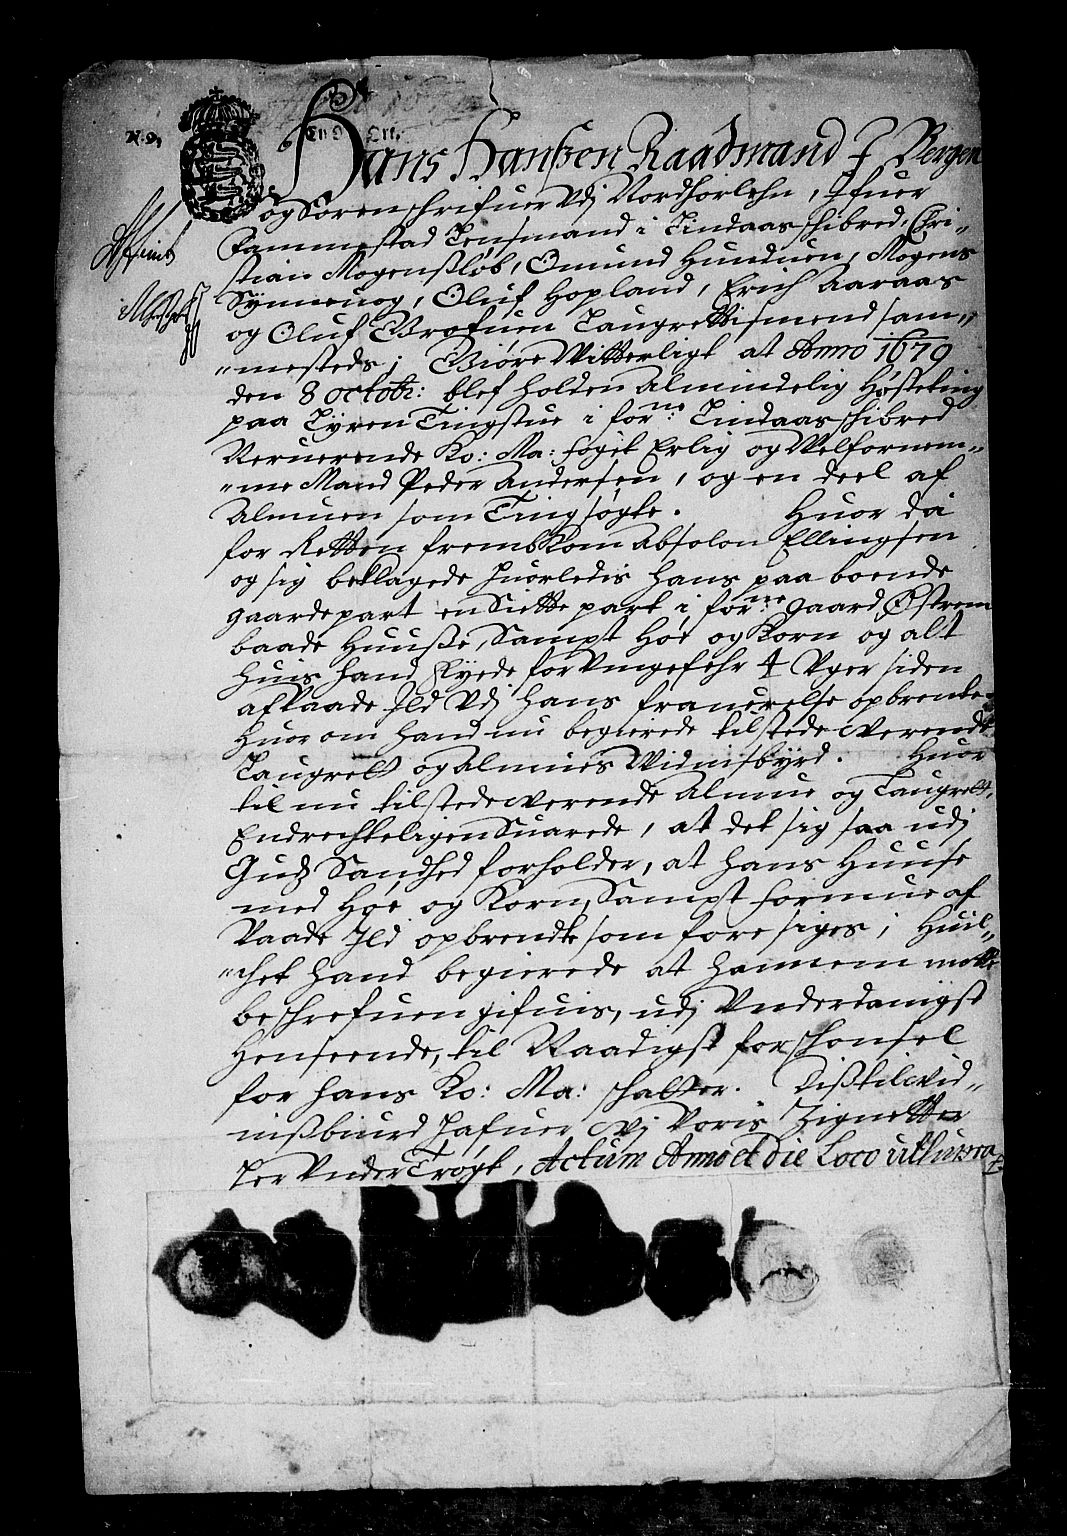 N. 9,
En 8 Ort.
Hans Hanßen Raadmand I Bergen
og Sorenschrifuer Vdj Nordhorlehn, Ifuer
Fammestad Lensmand i Lindaas schibred, Chri-
stian Mogensløb, Omund Hunduen, Mogens
Synneuog, Oluf Hopland, Erich Aaraas
og Oluf Brøfuen Laugrettismend sam-
mesteds; Giøre Witterligt at Anno 1679
den 8 octobr: blef holden Almindelig Høsteting
paa Lyren Tingstue i forne: Lindaas schibred
Neruerende Ko: Ma: foget Erlig og Welfornem-
me Mand Peder Andersen, og en deel af
Almuen som Ting søgte. Huor da
for Retten frembkom Absolon Ellingsen
og sig beklagede huorledis hans paa boende
gaardepart en Siette part i forne: gaard Østrem
baade Huuße, Sampt Høe og Korn og alt
huis hand Eyede for Vngefehr 4 Vger siden
af Vaade Ild Vdj hans frauerelse opbrente.
Huor om hand nu begierede tilstede werende
Laugrett og Almues Widnisbyrd. Huor
til nu tilstede werende Almue og Laugrett,
Endrechteligen Suarede, at det sig saa udj
Gudz Sandhed forholder, at hans Huuse
med Høe og Korn, Sampt formue af
Vaade Ild opbrendte som fore siges; Huil-
chet hand begierede at hannem motte
beschrefuen gifuis, udj Vnderdanigst
Henseende, til Naadigst forschonsel
for hans Ko: Ma: schatter. Dißtil wid-
nißbiurd hafuer wj voris Zignetter
her Vnder Trøgt, Actum Anno et die Loco ut supra